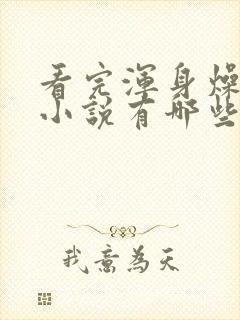 看完渾身燥
小說有哪些
我意為天